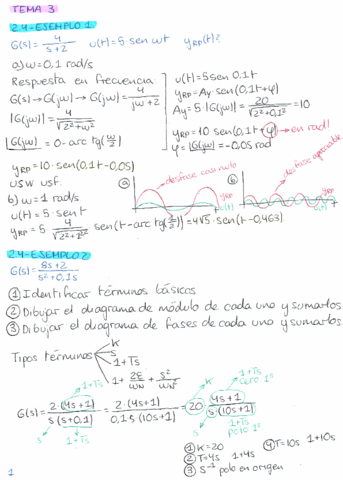 TEMA 3
2.4-EJEMPLO 1
G(s) = 4/(s+2)   u(t) = 5·sen wt   yRP(t)?
a) ω = 0,1 rad/s
Respuesta en frecuencia
G(s) → G(jω) → G(jω) = 4/(jω+2)
|G(jω)| = 4/√(2²+ω²)
∠G(jω) = 0 - arc tg(ω/2)
u(t) = 5 sen 0,1t
yRP = Ay · sen(0,1t+φ)
Ay = 5·|G(jω)| = 20/√(2²+0,1²) = 10
yRP = 10·sen(0,1t+φ) → en rad!
φ = ∠G(jω) = -0,05 rad
yRP = 10·sen(0,1t-0,05)
b) ω = 1 rad/s
u(t) = 5·sen t
yRP = 5 4/√(2²+1²) sen(t - arc tg(1/2)) = 4√5·sen(t-0,463)
a desfase casi nulo
yRP
u(t)
b desfase apreciable
yRP
u(t)
2.4-EJEMPLO 2
G(s) = (8s+2)/(s²+0,1s)
① Identificar términos básicos
② Dibujar el diagrama de módulo de cada uno y sumarlos
③ Dibujar el diagrama de fases de cada uno y sumarlos
Tipos términos
K
s
1+Ts
1 + 2ξ/ωN + s²/ωN²
1+Ts
K
1+Ts
cero 1º
G(s) = 2·(4s+1)/(s(s+0,1)) = 2·(4s+1)/(0,1s(10s+1)) = 20 (4s+1)/(s(10s+1))
s
1+Ts
s
1+Ts
polo 1º
① K=20
② T=4s 1+4s
③ s⁻¹ polo en origen
④ T=10s 1+10s
1